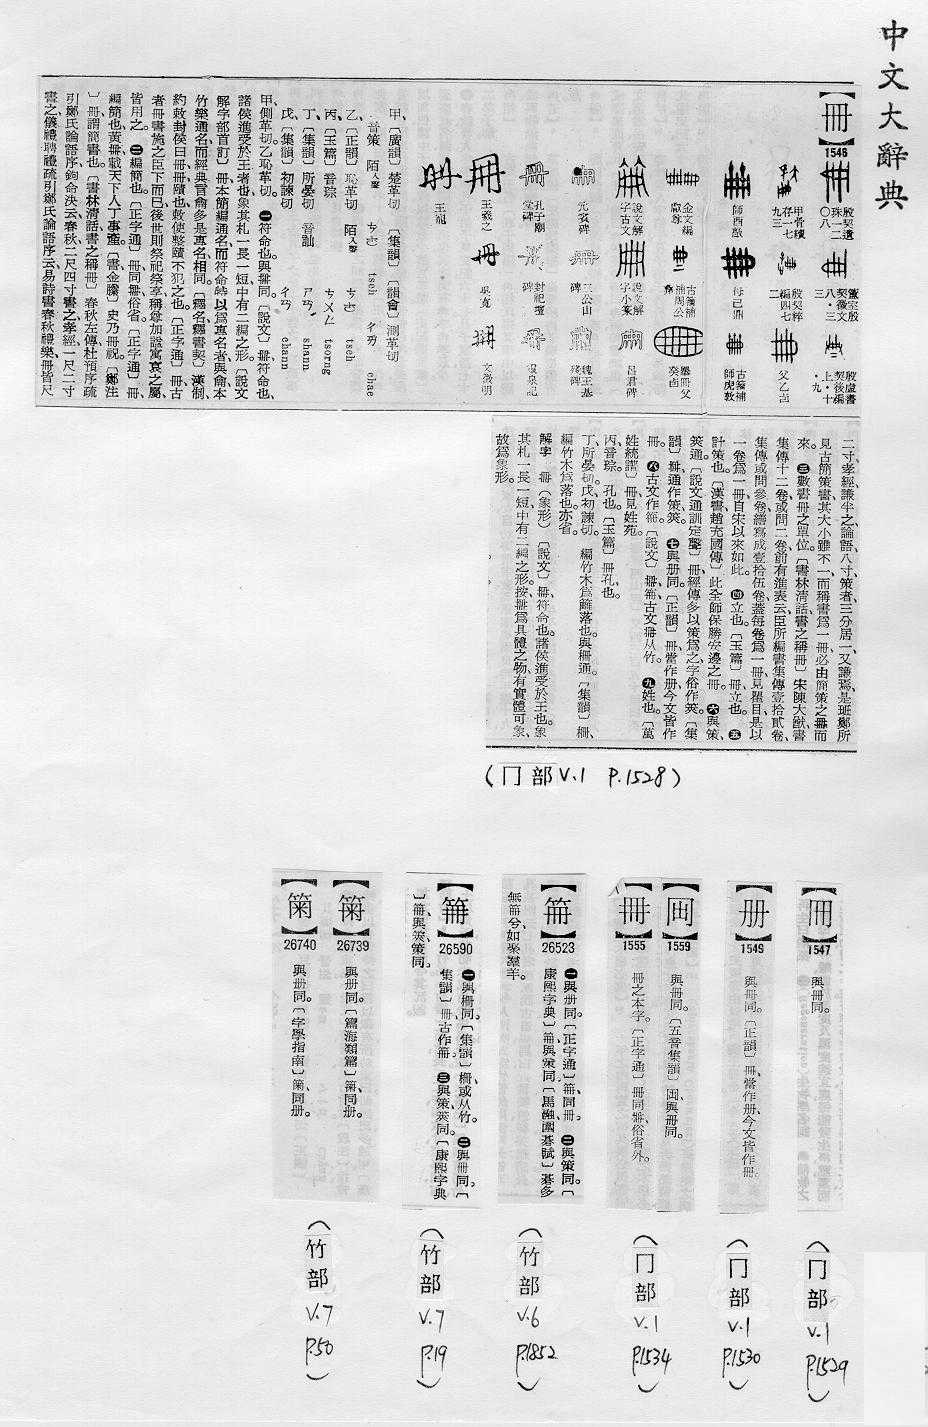 中文大辭典
【冊】
1546
殷契遺珠一二〇八
甲骨續存一七九三
師酉𣪘
金文編
說文解字古文
元賓碑
孔子廟堂碑
王羲之
王寵
簠室殷契徵文八・三
殷契粹編四七二
母己鼎
古籀補補周公
說文解字小篆
三公山碑
封祀壇碑
殷虛書契後編上・十九
父乙
古籀補師虎敦
冊父癸卣
呂君碑
魏王基殘碑
文徵明
甲、〔廣韻〕楚革切 〔集韻〕〔韻會〕測革切
音策 陌入聲 ㄘㄜˋ tseh
chae
乙、〔正韻〕恥革切 陌入聲 ㄘㄜˋ tseh
丙、〔玉篇〕音琮 ㄘㄨㄥˊ tsorng
丁、〔集韻〕所晏切 音訕 ㄕㄢˋ shann
戊、〔集韻〕初諫切 ㄔㄢˋ chann
甲、側革切、乙、恥革切。㊀符命也。與𠕋同。〔說文〕𠕋、符命也、
諸侯進受於王者也、象其札一長一短中有二編之形。〔說文
解字部首訂〕冊本簡編通名、而符命特以爲專名者、與龠本
竹樂通名、而經典言龠多是專名相同。〔釋名、釋書契〕漢制、
約敕封侯曰冊、冊、賾也、敕使整賾不犯之也。〔正字通〕冊、古
者冊書施之臣下而已、後世則祭祀祭享稱尊加諡寓哀之屬
皆用之。㊁編簡也。〔正字通〕冊同𠕋、俗省。〔正字通〕冊、
編簡也、黃冊載天下人丁事產。〔書、金縢〕史乃冊祝。〔鄭注
〕冊謂簡書也。〔書林清話、書之稱冊〕春秋左傳杜預序疏
引鄭氏論語序、鉤命決云、春秋二尺四寸書之、孝經一尺二寸
書之、儀禮聘禮疏引鄭氏論語序云、易詩書春秋禮樂冊皆尺
二寸、孝經謙半之、論語八寸、策者三分居一、又謙焉、是班鄭所
見古簡策書、其大小雖不一、而稱書爲一冊、必由簡策之冊而
來。㊂數書冊之單位。〔書林清話、書之稱冊〕宋陳大猷書
集傳十二卷、或問二卷、前有進表云、臣所編書集傳壹拾貳卷、
集傳或問參卷、繕寫成壹拾伍卷、蓋每卷爲一冊、見瞿目、是以
一卷爲一冊、自宋以來如此。㊃立也。〔玉篇〕冊、立也。㊄
計策也。〔漢書、趙充國傳〕此全師保勝安邊之冊。㊅與策、
筴通。〔說文通訓定聲〕冊、經傳多以策爲之、字俗作筴。〔集
韻〕𠕋、通作策、筴。㊆與册同。〔正韻〕冊、當作册、今文皆作
冊。㊇古文作𥬰。〔說文〕𠕋、𥬰古文𠕋从竹。㊈姓也。〔萬
姓統譜〕冊、見姓苑。
丙、音琮。 孔也。〔玉篇〕冊、孔也。
丁、所晏切、戊、初諫切。 編竹木爲籬落也、與柵通。〔集韻〕柵、
編竹木爲落也、亦省。
解字 𠕋(象形)〔說文〕𠕋、符命也、諸侯進受於王也、象
其札一長一短、中有二編之形。按𠕋爲具體之物、有實體可象、
故爲象形。
(冂部 V.1 P.1528)
1547
與冊同。
(冂部 V.1 P.1529)
【册】
1549
與冊同。〔正韻〕冊、當作册、今文皆作冊。
(冂部 V.1 P.1530)
1559
與冊同。〔五音集韻〕與冊同。
【𠕋】
1555
冊之本字。〔正字通〕冊同𠕋、俗省外。
(冂部 V.1 P.1534)
26523
㊀與册同。〔正字通〕同冊。㊁與策同。〔
康熙字典〕與策同。〔馬融、圍棊賦〕棊多
無𥬰兮、如聚羣羊。
(竹部 V.6 P.1852)
26590
㊀與柵同。〔集韻〕柵、或从竹。㊁與冊同。〔
集韻〕冊、古作。㊂與策、筴同。〔康熙字典
〕與筴、策同。
(竹部 V.7 P.19)
26739
與册同。〔篇海類篇〕同册。
26740
與册同。〔字學指南〕同册。
(竹部 V.7 P.50)